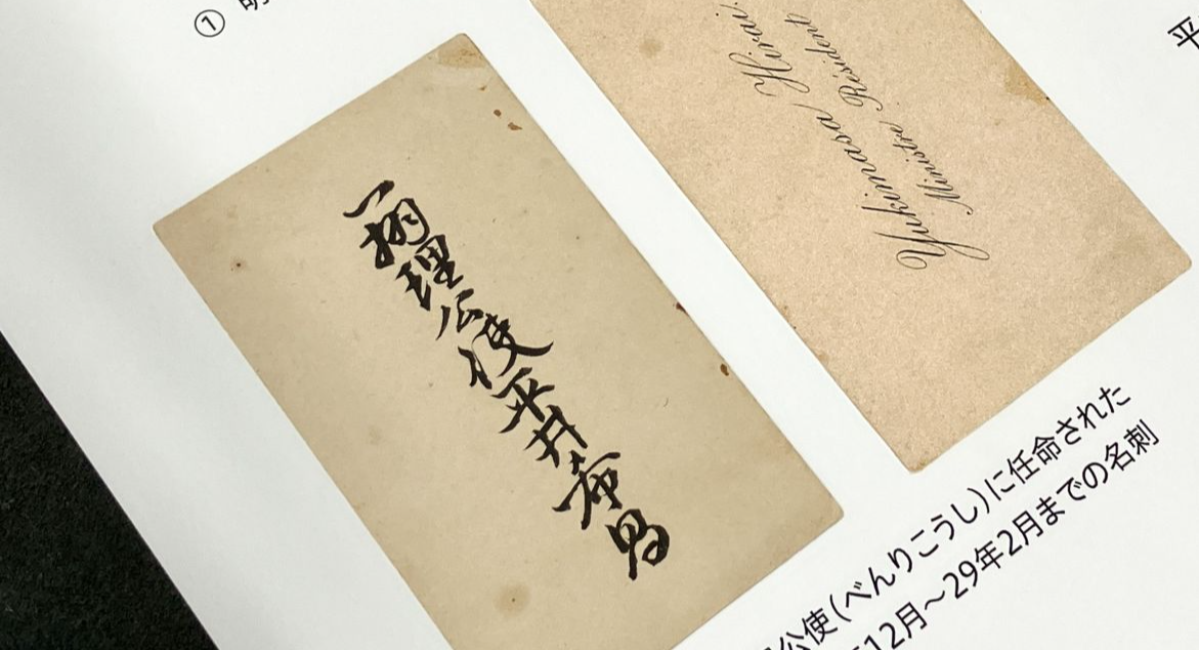 ① 明
平
辨理公使平井希昌
Yukimasa Hirai.
Ministre Résident
公使(べんりこうし)に任命された
12月～29年2月までの名刺